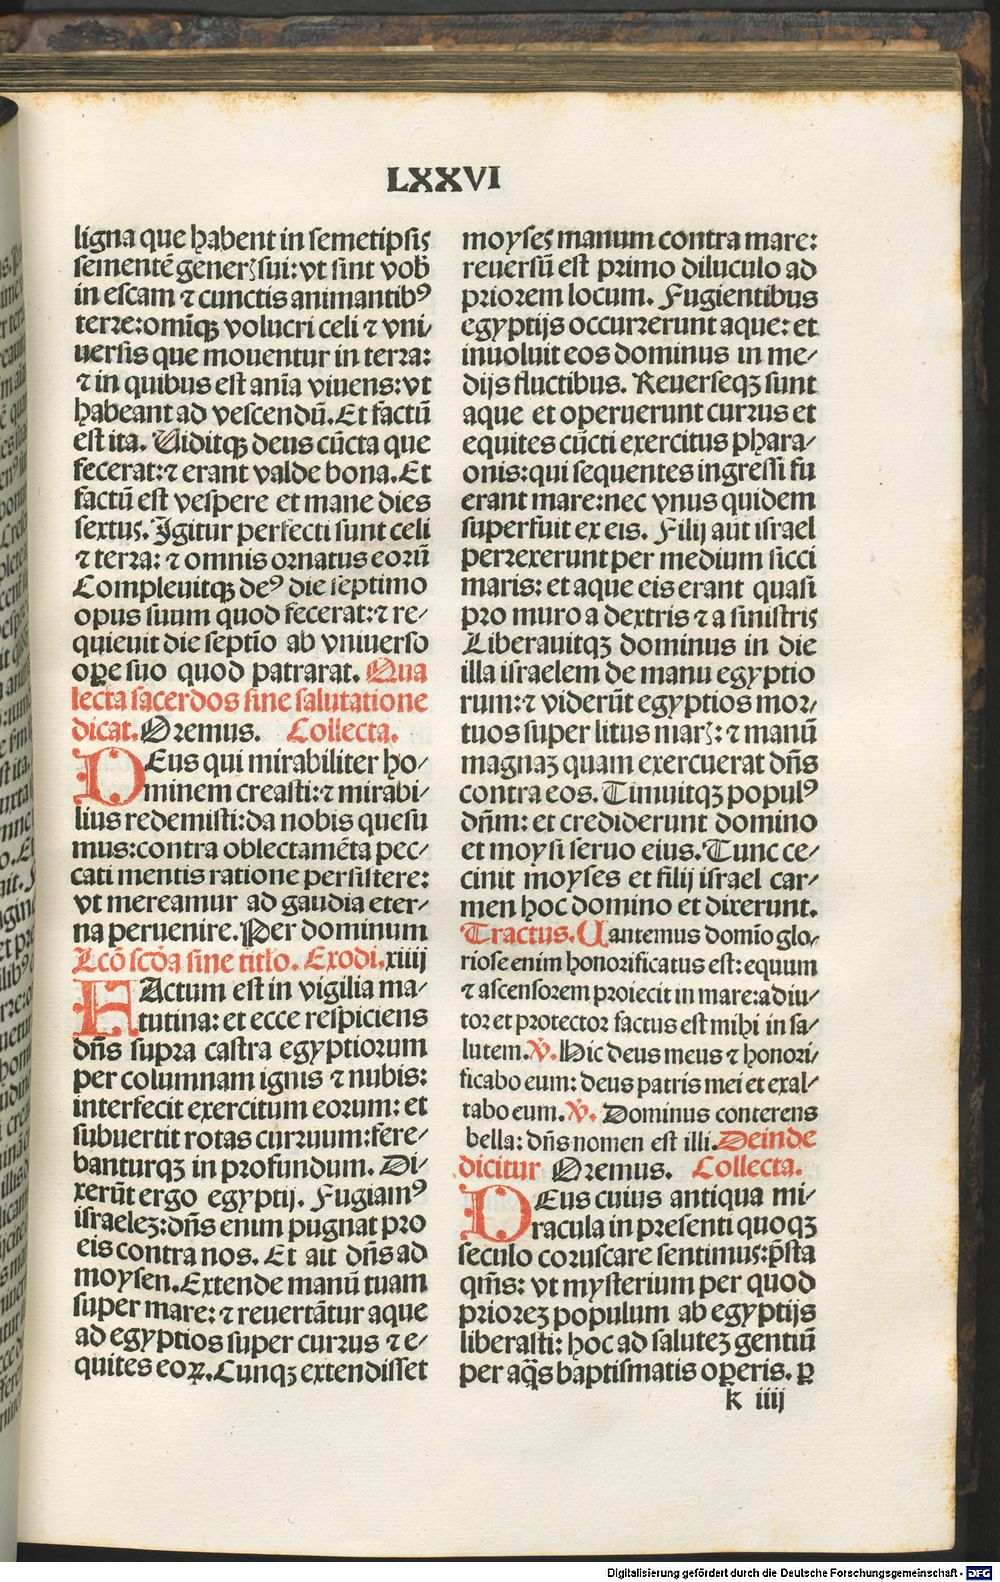 LXXVI
ligna que habent in semetipsis
sementē generꝭ sui: vt sint vob̄
in escam ⁊ cunctis animantibꝰ
terre: omīqꝫ volucri celi ⁊ vni-
uersis que mouentur in terra:
⁊ in quibus est anīa viuens: vt
habeant ad vescendū. Et factū
est ita. Uiditqꝫ deus cūcta que
fecerat: ⁊ erant valde bona. Et
factū est vespere et mane dies
sextus. Igitur perfecti sunt celi
⁊ terra: ⁊ omnis ornatus eorū
Compleuitqꝫ deꝰ die septimo
opus suum quod fecerat: ⁊ re-
quieuit die septīo ab vniuerso
oꝑe suo quod patrarat. Qua
lecta sacerdos sine salutatione
dicat. Oremus. Collecta.
DEus qui mirabiliter ho-
minem creasti: ⁊ mirabi-
lius redemisti: da nobis quesu
mus: contra oblectamēta pec-
cati mentis ratione persistere:
vt mereamur ad gaudia eter-
na peruenire. Per dominum
Lcō scd̄a sine titlo. Exodi. xiiij
FActum est in vigilia ma-
tutina: et ecce respiciens
dn̄s supra castra egyptiorum
per columnam ignis ⁊ nubis:
interfecit exercitum eorum: et
subuertit rotas curruum: fere-
banturqꝫ in profundum. Di-
xerūt ergo egyptij. Fugiamꝰ
israeleꝫ: dn̄s enim pugnat pro
eis contra nos. Et ait dn̄s ad
moysen. Extende manū tuam
super mare: ⁊ reuertātur aque
ad egyptios super currus ⁊ e-
quites eoꝝ. Cunqꝫ extendisset
moyses manum contra mare:
reuersū est primo diluculo ad
priorem locum. Fugientibus
egyptijs occurrerunt aque: et
inuoluit eos dominus in me-
dijs fluctibus. Reuerseqꝫ sunt
aque et operuerunt currus et
equites cūcti exercitus phara-
onis: qui sequentes ingressi fu
erant mare: nec vnus quidem
superfuit ex eis. Filij aūt israel
perrexerunt per medium sicci
maris: et aque eis erant quasi
pro muro a dextris ⁊ a sinistris
Liberauitqꝫ dominus in die
illa israelem de manu egyptio
rum: ⁊ viderūt egyptios mor-
tuos super litus marꝭ: ⁊ manū
magnaꝫ quam exercuerat dn̄s
contra eos. Timuitqꝫ populꝰ
dn̄m: et crediderunt domino
et moysi seruo eius. Tunc ce-
cinit moyses et filij israel car-
men hoc domino et dixerunt.
Tractus. Cantemus domīo glo-
riose enim honorificatus est: equum
⁊ ascensorem proiecit in mare: adiu-
tor et protector factus est mihi in sa-
lutem. ꝟ. Hic deus meus ⁊ honori-
ficabo eum: deus patris mei et exal-
tabo eum. ꝟ. Dominus conterens
bella: dn̄s nomen est illi. Deinde
dicitur Oremus. Collecta.
DEus cuius antiqua mi-
racula in presenti quoqꝫ
seculo coruscare sentimus: p̄sta
qm̄s: vt mysterium per quod
prioreꝫ populum ab egyptijs
liberasti: hoc ad saluteꝫ gentiū
per aq̄s baptismatis oꝑeris. ꝑ
k iiij
Digitalisierung gefördert durch die Deutsche Forschungsgemeinschaft - DFG